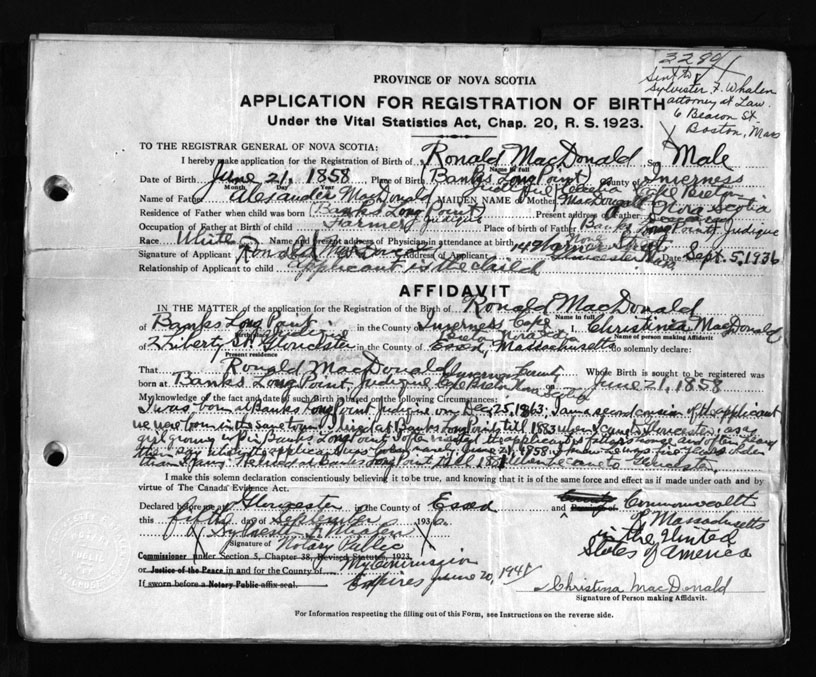 3294
Sent to
Sylvester F. Whalen
attorney at Law.
6 Beacon St.
Boston, Mass
PROVINCE OF NOVA SCOTIA
APPLICATION FOR REGISTRATION OF BIRTH
Under the Vital Statistics Act, Chap. 20, R. S. 1923.
TO THE REGISTRAR GENERAL OF NOVA SCOTIA:
I hereby make application for the Registration of Birth of Ronald MacDonald Sex Male
Name in full
Date of Birth June 21, 1858 Place of Birth Banks Long Point County of Inverness
Month Day Year
Judique Cape Breton
Name of Father Alexander MacDonald MAIDEN NAME of Mother MacDougall Nova Scotia
Residence of Father when child was born Banks Long Point Present address of Father Deceased
Occupation of Father at Birth of Child Farmer Place of birth of Father Banks Long Point, Judique
Race White Name and present address of Physician in attendance at birth none
Signature of Applicant Ronald MacDonald Address of Applicant 14 Warner Street Gloucester Mass Date Sept. 5, 1936
Relationship of Applicant to child applicant is the child
AFFIDAVIT
IN THE MATTER of the application for the Registration of the Birth of Ronald MacDonald
Name in full
of Banks Long Point Judique in the County of Inverness Cape Breton Nova Scotia I, Christina MacDonald
Name of person making Affidavit
of 2 Liberty St. Gloucester in the County of Essex, Massachusetts do solemnly declare:
Present residence
That Ronald MacDonald Whose Birth is sought to be registered was
born at Banks Long Point, Judique Inverness County Cape Breton Nova Scotia June 21, 1858
My knowledge of the fact and date of such Birth is based on the following Circumstances:
I was born at Banks Long Point Judique on Dec 25, 1863; I am a second cousin of the applicant
we were born in the same town. I lived at Banks Long Point till 1883 when I came to Gloucester, as a
girl growing up in Banks Long Point I often visited the applicant's father's home and often heard
than I am. He lived at Banks Long Point till when he came to Gloucester.
I make this solemn declaration conscientiously believing it to be true, and knowing that it is of the same force and effect as if made under oath and by
virtue of The Canada Evidence Act.
Declared before me at Gloucester in the County of Essex and Commonwealth
this fifth day of September 1936 of Massachusetts
in the United
States of America
Sylvester F. Whalen
Signature of
Notary Public
Commissioner under Section 5, Chapter 38, Revised Statutes, 1923.
or Justice of the Peace in and for the County of My Commission
If sworn before a Notary Public affix seal. Expires June 20, 1941
Christina MacDonald
Signature of Person making Affidavit.
For Information respecting the filling out of this Form, see Instructions on the reverse side.